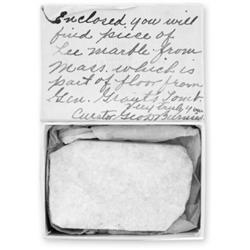 Enclosed you will
find piece of
Lee marble from
Mass. which is
part of floor from
Gen. Grant's Tomb.
Very truly your
Curator Geo D Burnside